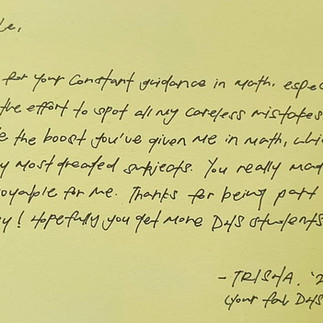 for your constant guidance in math, espec
the effort to spot all my careless mistakes
the boost you've given me in math, whic
most dreaded subjects. You really mad
oyable for me. Thanks for being part
! Hopefully you get more DHS students
- TRISHA. '2
(your fav DHS